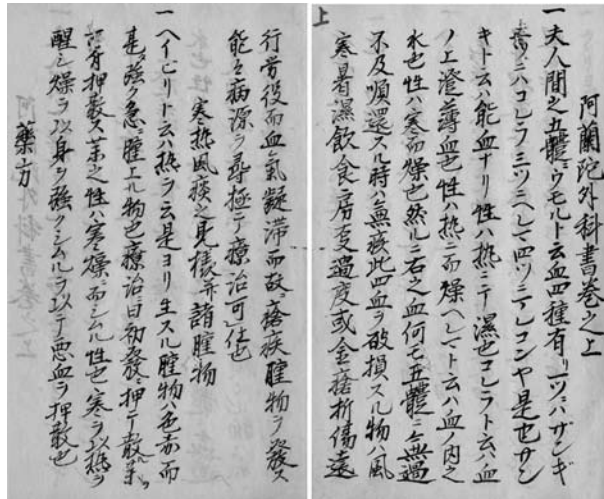 上
阿蘭陀外科書巻之上
一夫人間之五體ニウモルト云血四種有リ一ツニハサンギ
二ツニハコレラ三ツニヘレマ四ツニマレンコンヤ是也サン
キト云ハ能血ナリ性ハ热ニ〆濕也コレラト云ハ血
ノ上澄薄血也性ハ热ニ而燥ヘレマト云ハ血ノ内之
水也性ハ寒而燥也然ルニ右之血何モ五體ニ無過
不及順還スル時ハ無疾此四血ヲ破損スル物ハ風
寒暑濕飲食房交過度或金瘡折傷遠
行労役而血氣凝滞而故ニ瘡疾腫物ヲ發ス
能々病源ヲ尋極テ療治可仕也
寒热風痰之見様并諸腫物
一ヘイヒリト云ハ热ヲ云是ヨリ生スル腫物ハ色赤而
甚強ク急ニ腫上ル物也療治ニ曰初發ニ押テ散薬
押散ス薬之性ハ寒燥ニ而シムル性也寒ヲ以热ヲ
醒シ燥ヲ以身ヲ強クシムルヲ以テ悪血ヲ押散也
薬方